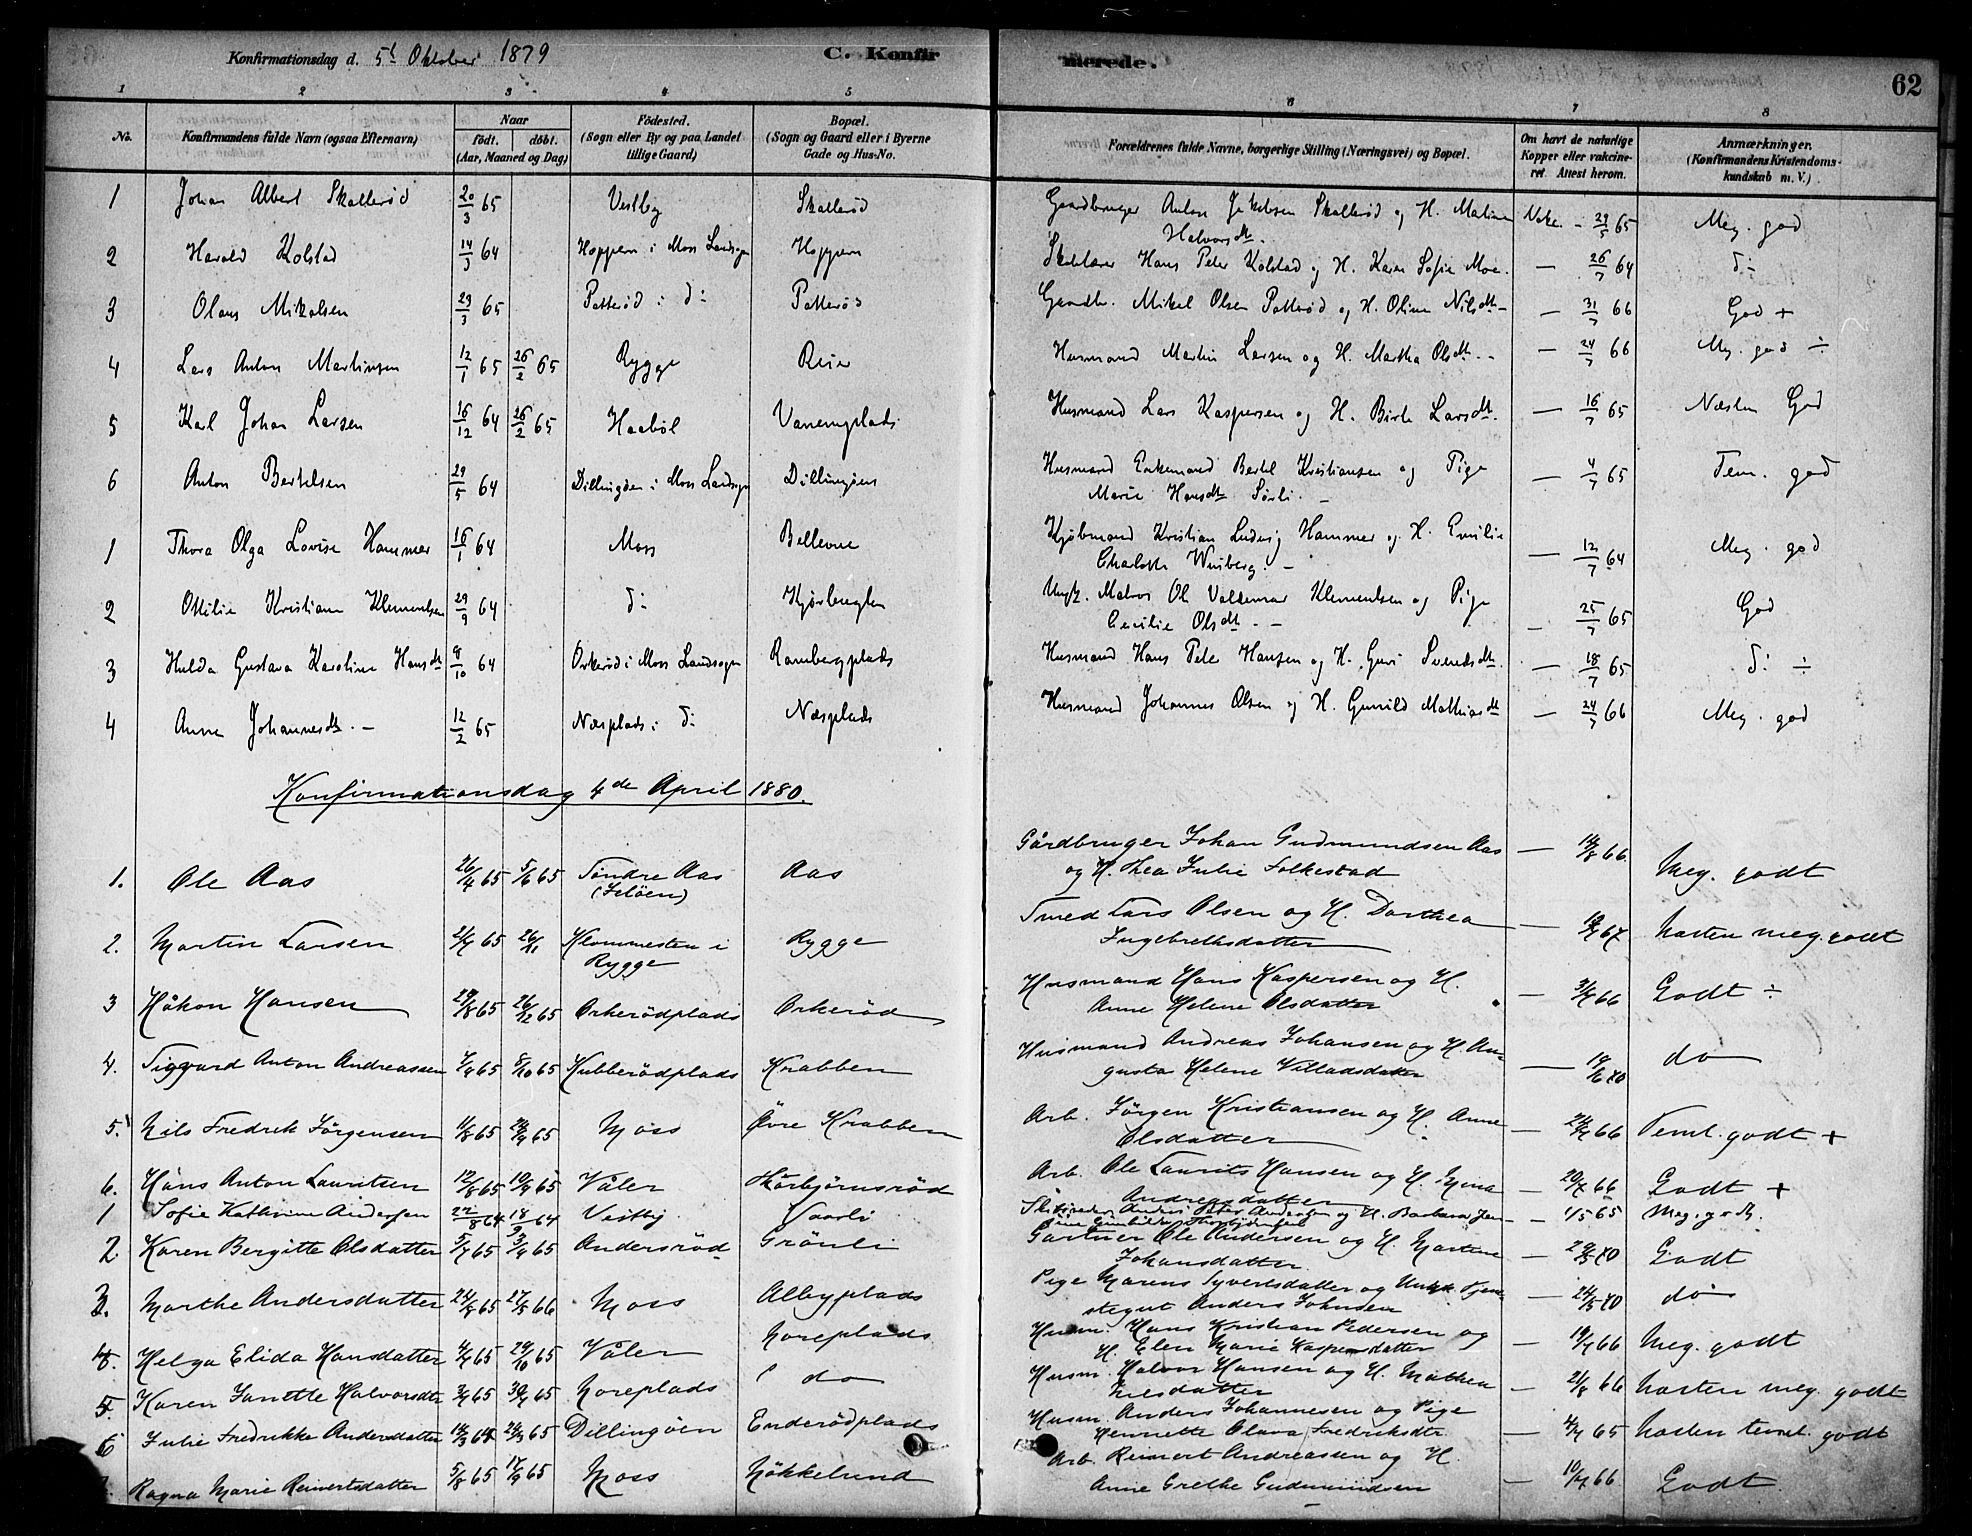 Konfirmationsdag d. 5t Oktober 1879 C. Konfirmerede. 62
1 2 3 4 5 6 7 8
No. Konfirmandens fulde Navn (ogsaa Efternavn) Naar født. døbt. (Aar, Maaned og Dag) Födested. (Sogn eller By og paa Landet tillige Gaard) Bopæl. (Sogn og Gaard eller i Byerne Gade og Hus-No. Forældrenes fulde Navne, borgerlige Stilling (Næringsvei) og Bopæl. Om havt de naturlige Kopper eller vakcineret. Attest herom. Anmærkninger. (Konfirmandens Kristendomskundskab m. V.)
1 Johan Albert Skallerød 20/3 65 Vestby Skallerød Gaardbruger Anton Jakobsen Skallerød og H. Maline Halvorsdtr. Vake. - 29/5 65 Meg. god
2 Harald Kolstad 14/3 64 Hoppern i Moss Landsogn Hoppern Skolelærer Hans Peter Kolstad og H. Karen Sofie Moe. — 26/7 64 d:
3 Olaus Mikalsen 29/3 65 Patterød i d: Patterød Gaardb. Mikel Olsen Patterød og H. Oline Nilsdtr — 31/7 66 God +
4 Lars Anton Martinsen 12/1 65 26/2 65 Rygge Reier Husmand Martin Larsen og H. Martha Olsdtr. — 24/7 66 Meg. god ÷
5 Karl Johan Larsen 16/12 64 26/2 65 Haabøl Vanemplads Husmand Lars Kaspersen og H. Birte Larsdtr. — 16/7 65 Næsten God
6 Anton Bertelsen 29/5 64 Dillingøen i Moss Landsogn Dillingöen Husmand Enkemand Bertel Kristiansen og Pige Marie Hansdtr Sørli. — 4/7 65 Tem. god
1 Thora Olga Lovise Hammer 16/1 64 Moss Bellevue Kjøbmand Kristian Ludvig Hammer og H. Emilie Charlotte Wiisberg. — 12/7 64 Meg. god
2 Ottilie Kristiane Klementsen 29/9 64 d: Ungk. Matros Ol Valdemar Klementsen og Pige Cecilie Olsdtr. — 25/7 65 God
3 Hulda Gustava Karoline Hansdtr 8/10 64 Orkerød i Moss Landsogn Rambergplads Husmand Hans Peter Hansen og H. Guri Svendsdtr. — 18/7 65 d: ÷
4 Anne Johannesdtr. 12/2 65 Næsplads i d: Næsplads Husmand Johannes Olsen og H. Gunild Mathiasdtr — 24/7 66 Meg. god
Konfirmationsdag 4de April 1880.
1. Ole Aas 26/4 65 5/6 65 Søndre Aas (Jeløen) Aas Gårdbruger Johan Gudmundsen Aas og H. Thea Julie Folkestad — 14/8 66 Meg. godt
2. Martin Larsen 2/7 65 26/11 Klommesten i Rygge Rygge Smed Lars Olsen og H. Dorthea Ingebrethsdatter — 67 Næsten meg. godt
3 Håkon Hansen 65 26/12 65 Orkerödplads Orkeröd Husmand Hans Kaspersen og H. Anne Helene Olsdatter — 66 Godt ÷
4. Siggvard Anton Andreassen 65 8/10 65 Kubberödplads Krabben Husmand Andreas Johansen og H. Augusta Helene Villadsdatter — do
5. Nils Fredrik Jörgensen 11/8 65 65 Moss Øvre Krabben Arb. Jörgen Kristiansen og H. Anne Olsdatter — 66 Teml. godt +
6. Håns Anton Lauritsen 12/8 65 65 Våler Thorbjörnsröd Arb. Ole Laurits Hansen og H. Andreasdatter — 66 Godt +
1 Sofie Kathrine Andersen 22/8 64 18/9 64 Vestby Vaarli Anders Peter Andersen og H. Barbara — 1/5 65 Meg. godt.
2 Karen Bergitte Olsdatter 65 3/9 65 Andersröd Grönli Gartner Ole Andersen og H. Martine Johansdatter — Godt
3. Marthe Andersdatter 65 27/5 66 Moss Albyplads Pige Marens Syvertsdatter og Ungk. Tjenstegut Anders Johnsen — do
4. Helga Elida Hansdatter 65 29/10 65 Våler Noreplads Husm. Hans Kristian Pedersen og H. Elen Marie Kaspersdatter — 66 Meg. godt
5 Karen Janette Halvorsdtr 65 65 Noreplads do Husm. Halvor Hansen og H. Mathea Nilsdatter — 21/8 66 Næsten meg. godt
6 Julie Fredrikke Andersdatter 64 65 Dillingöen Enderödplads Husm. Anders Johannesen og Pige Hennette Olava Fredriksdtr — 65 Næsten teml. godt
Ragna Marie Reinertsdatter 5/8 65 17/9 65 Moss Nökkelund Arb. Reinert Andreassen og H. Anne Grethe Gudmundsen — 66 Godt